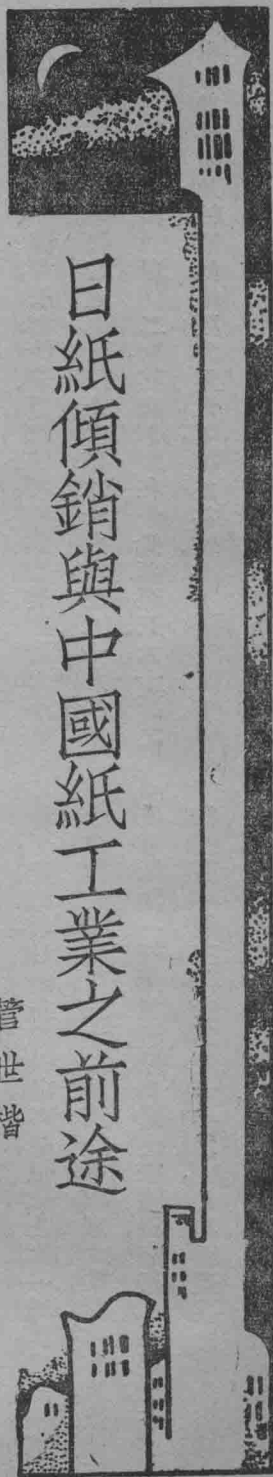 日紙傾銷與中國紙工業之前途
管世楷